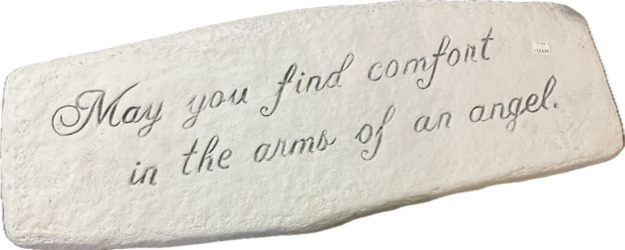 May you find comfort
in the arms of an angel.